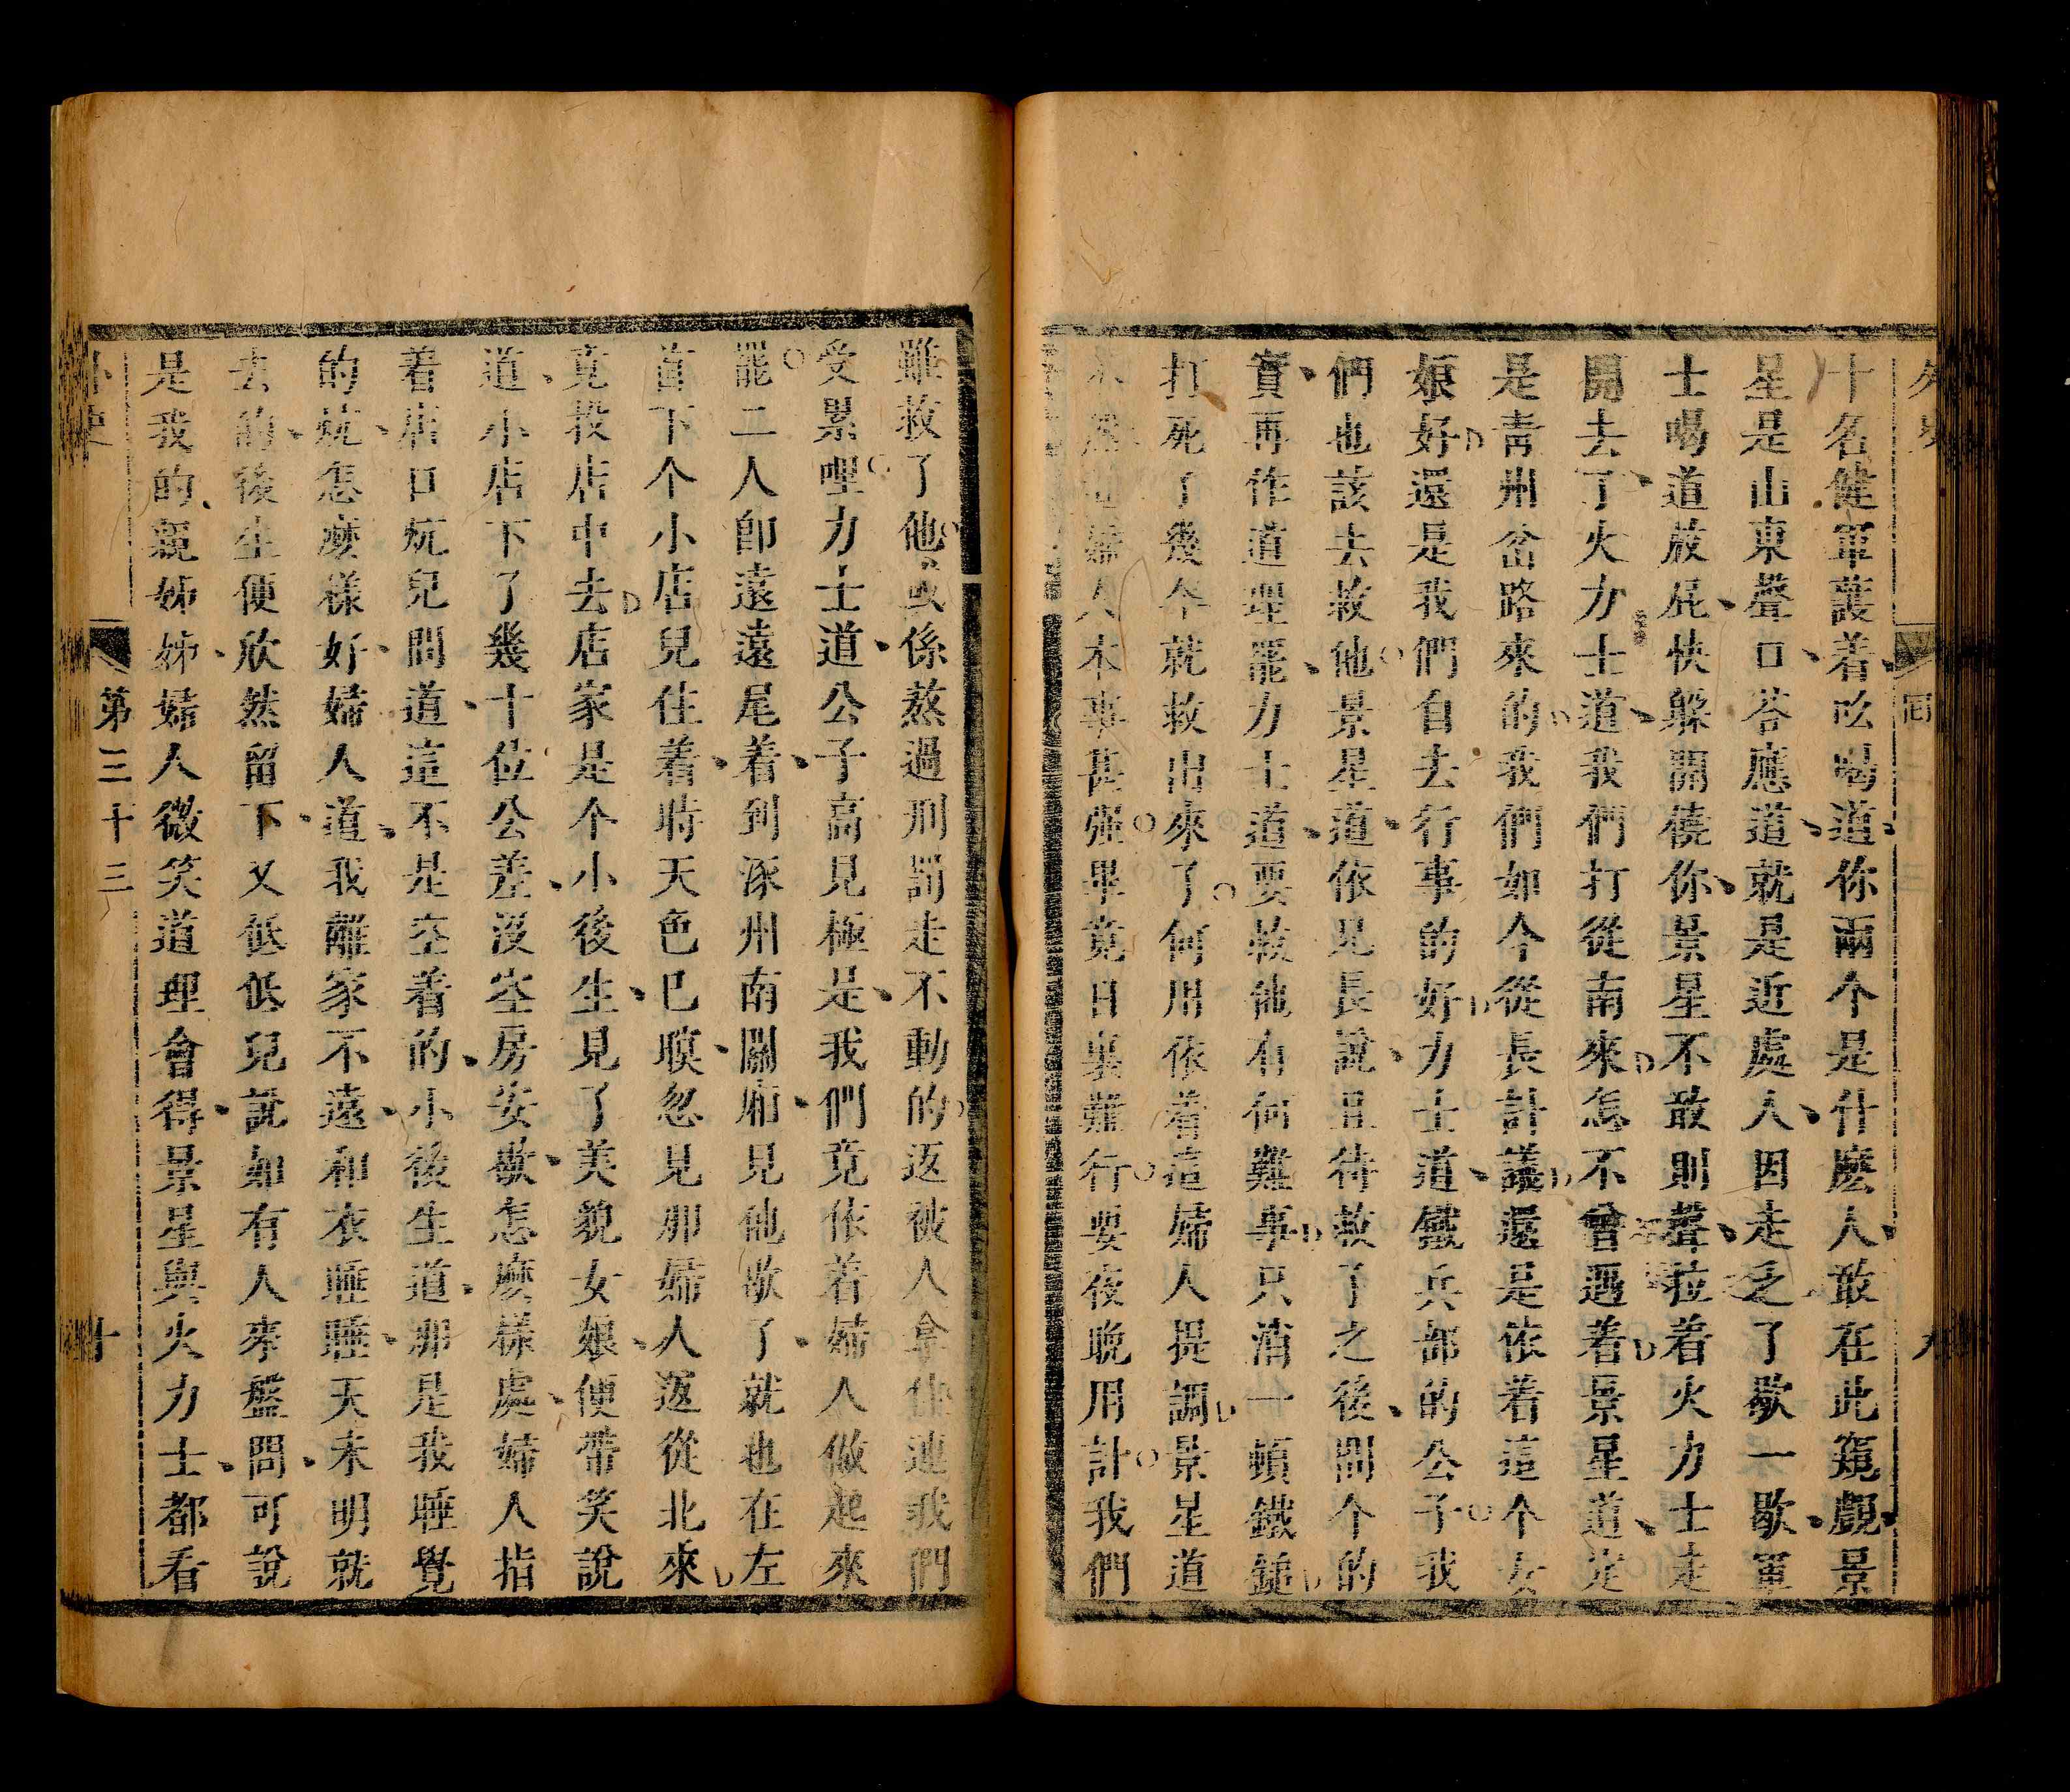 外史
回
九
十名健軍護着吆喝道你兩个是什麽人敢在此窺覷景
星是山東聲口荅應道就是近處人因走乏了歇一歇軍
士喝道放屁快躲開饒你景星不敢則聲拉着火力士走
開去了火力士道我們打從南來怎不曾遇着景星道定
是靑州岔路來的我們如今從長計議還是依着這个女
娘好還是我們自去行事的好力士道鐵兵部的公子我
們也該去救他景星道依兄長說且待救了之後問个的
實再作道理罷力士道要救他有何難事只消一頓鐵鎚
打死了幾个就救出來了何用依着這婦人提調景星道
婦人本事甚強畢竟日裏難行要夜晚用計我們
雖救了他或係熬過刑罰走不動的返被人拿住連我們
受累哩力士道公子高見極是我們竟依着婦人做起來
罷二人卽遠遠尾着到涿州南關廂見他歇了就也在左
首下个小店兒住着時天色已暝忽見那婦人返從北來
竟投店中去店家是个小後生見了美貌女娘便帶笑說
道小店下了幾十位公差沒空房安歇怎麽樣處婦人指
着店口炕兒問道這不是空着的小後生道那是我睡覺
的炕怎麽樣好婦人道我離家不遠和衣睡睡天未明就
去的後生便欣然留下又低低兒說如有人來盤問可說
是我的親姊姊婦人微笑道理會得景星與火力士都看
外史
第三十三
十